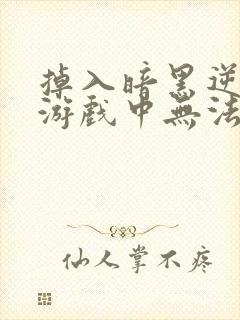 掉入暗黑逆
游戏中無法
仙人掌不疼